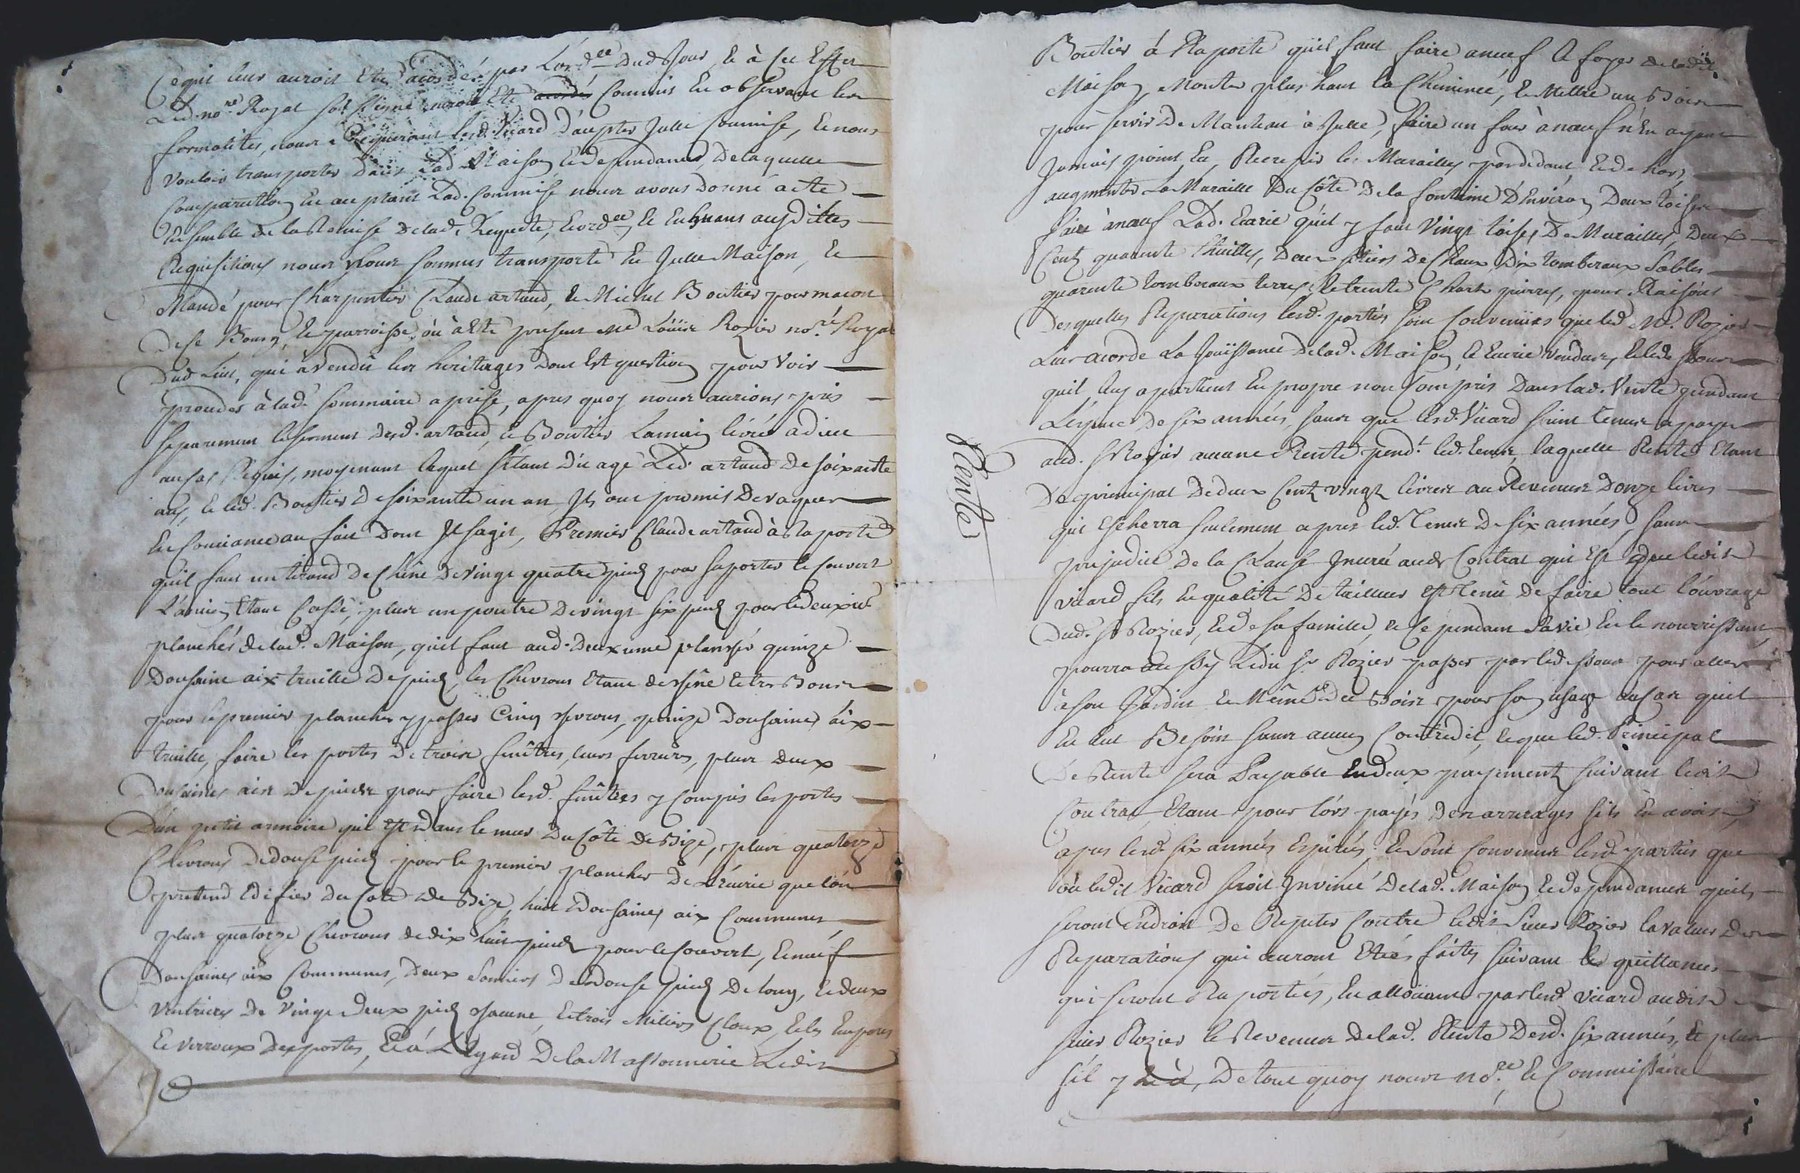 ce qui leur auroit Eté acordé par L'ord.ce Dud Jour, Et à cet Effet
Led. no.re Royal sous signé auroit Eté acordé Commis En observant les
formalités, nous Requerant lesd. Vicard D'accepter Jcelle Commise, Et nous
Vouloir transporter Dans Lad. Maison Et dependances De laquelle
Comparution Et acceptant Lad. Commise nous avons Donné acte
Ensemble de la Remise de lad. Requete, Et ord.ce, Et En suivant ausdittes
Requisitions nous nous sommes transporté En Jcelle Maison, Et
Mandé pour Charpentier Claude artaud, Et Michel Boutier pour macon
De ce Bourg, Et parroisse, où à Eté present M.e Louis Rozier no.re Royal
Dud. Lieu, qui à Vendû les heritages Dont Est question pour Voir
proceder à lad. sommaire aprise, apres quoy nous aurions pris
separement le serment desd. artaud, Et Boutier Lamain levée à dieu
au cas Requis, moyenant lequel S'étant D'icage Led. artaud de soixante
ans, Et led. Boutier de soixante un an Jls ont promis De Vaquer
En Conciance au fait Dont Jl sagit, Premier Claude artaud à Raporté
quil faut un tirand De Chêne De vingt quatre pieds pour suporter le Couvert
L'ancien Etant Cassé, plus un poutre De vingt six pieds pour le deuxieme
planchés de lad. Maison, quil faut aud. deuxieme planché quinze
Dousaine aix treuille de pieds, les Chevrons Etant de chêne Et tres Bons
pour le premier plancher y passer Cinq chevrons, quinze Dousaines aix
treuille, faire les portes De trois fenêtres, leurs ferrures, plus deux
Dousaines aix de pieds pour faire lesd. fenêtres y compris les portes
D'un petit armoire qui est dans le mur Du Côté de Bize, plus quatorze
Chevrons De douse pieds pour le premier plancher De L'écurie que l'on
pretend Edifier du Coté de Bize, huit dousaines aix Communes
plus quatorze Chevrons de dix huit pieds pour le Couvert, Et neuf
Dousaines aix Communes, Deux Somiers de douse pieds De long, Et deux
Ventriers de vingt deux pieds chacune Et trois Miliers Cloux, Et les Empares
Et verroux Des portes, Et à L'égard De la Massonnerie Ledit
Rente
Boutier à Raporté quil faut faire aneuf Le foyer de lad.
Maison, Monter plus haut la Cheminée, Et Mettre un Bois
pour servir De Manteau à Jcelle, faire un four à neuf n'En ayant
Jamais point Eu, Recrepir les Murailles par dedans, Et de hors
augmenter La Muraille Du Côté De la fontaine D'Environ Deux toises
faire à neuf Lad. Ecurie qu'il y faut Vingt toises De Murailles, Deux
Cent quarante thuilles, Deux de Chaux Dix tomberaux Sables
quarente tomberaux terre, Et trente Chars pierres, pour Raisons
Desquelles Reparations lesd. partis sont Convenües que led. M.e Rozier
Leur acorde La Joüissance De lad. Maison, Et Ecurie Vendües, Et led.
quil luy apartient En propre non Compris Dans lad. Vente pendant
L'éspace de six années, sans que lesd. Vicard soient tenus a payer
aud. S.r Rozier aucune Rente pend.t led. tems, laquelle Rente Etant
De principal De deux Cent vingt livres au Revenus D'onze livres
qui Escherra seulement apres led. tems De six années, sans
prejudice De la Clause Jnseré aud. Contrat qui Est que ledit
Vicard fils En qualité De tailleur Est tenû de faire tout l'ouvrage
Dud. S.r Rozier, Et de sa famille, Et ce pendant sa vie En le nourrissant,
pourra aussy Ledit S.r Rozier passer par le dessous pour aller
à son Jardin Et Même De Boire pour son usage au Cas quil
En eut Besoin sans aucun Contredit, Et que led. Principal
De Rente sera Payable Endeux payements suivant ledit
Contrat Etant pour lors payés Des arrerages s'ils En avoit,
apres lesd. six années Expirés. Et sont Convenus lesd. parties que
où ledit Vicard seroit Jnvincé De lad. Maison Et dependances quils
seront Endroit De Repeter Contre ledit sieur Rozier la valeur Des
Reparations qui auront Etées faites suivant les quittances
qui seront Raportées, En alloüant par lesd. Vicard audit
sieur Rozier le Revenus de lad. Rente Desd. six années, Et plus
s'il y En à, De tout quoy nous no.re, Et Commissaire